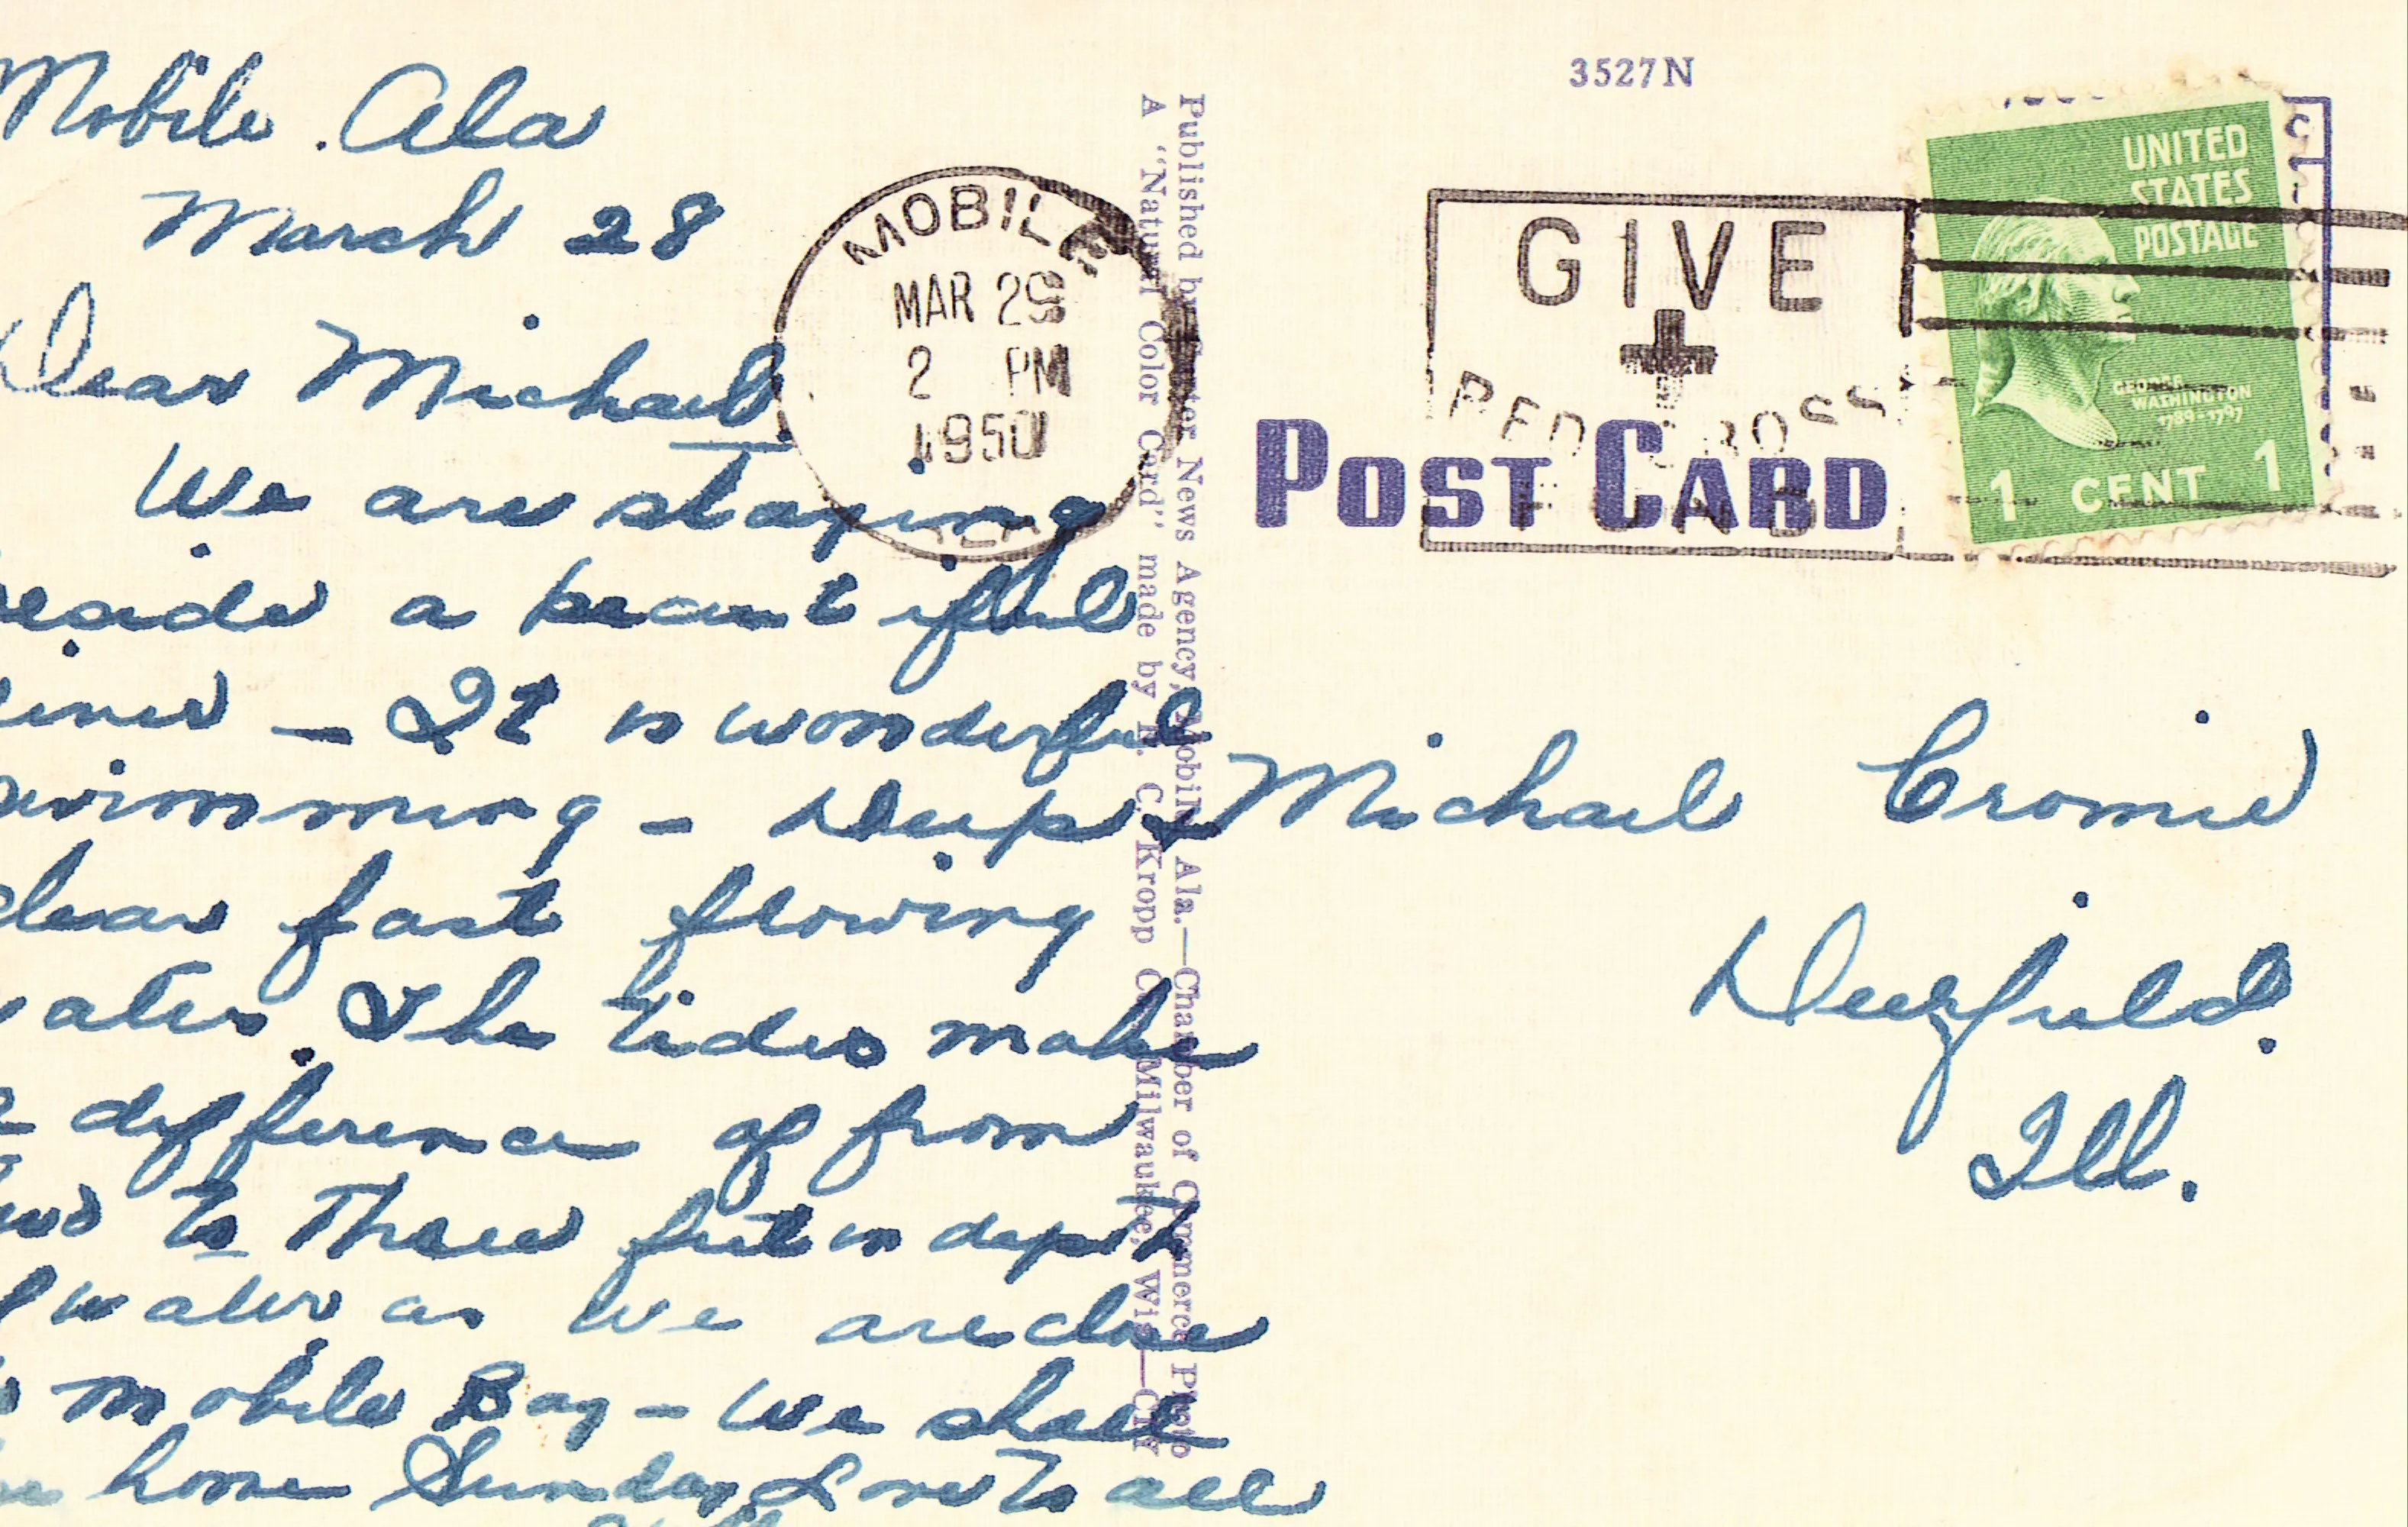 Mobile. Ala
March 28
Dear Michael.
We are staying
beside a beautiful
river – It is wonderful
swimming – Deep &
clear fast flowing
water. The tides make
a difference of from
two to three feet in depth
of water as we are close
to Mobile Bay – We shall
be home Sunday Love to all
MOBILE
MAR 29
2 PM
1950
ALA
Published by Center News Agency, Mobile, Ala.—Chamber of Commerce Photo
A "Natural Color Card" made by E. C. Kropp Co., Milwaukee, Wis.—City
3527N
GIVE
RED CROSS
POST CARD
UNITED
STATES
POSTAGE
GEORGE
WASHINGTON
1789-1797
1 CENT 1
Michael Cromie
Deerfield.
Ill.